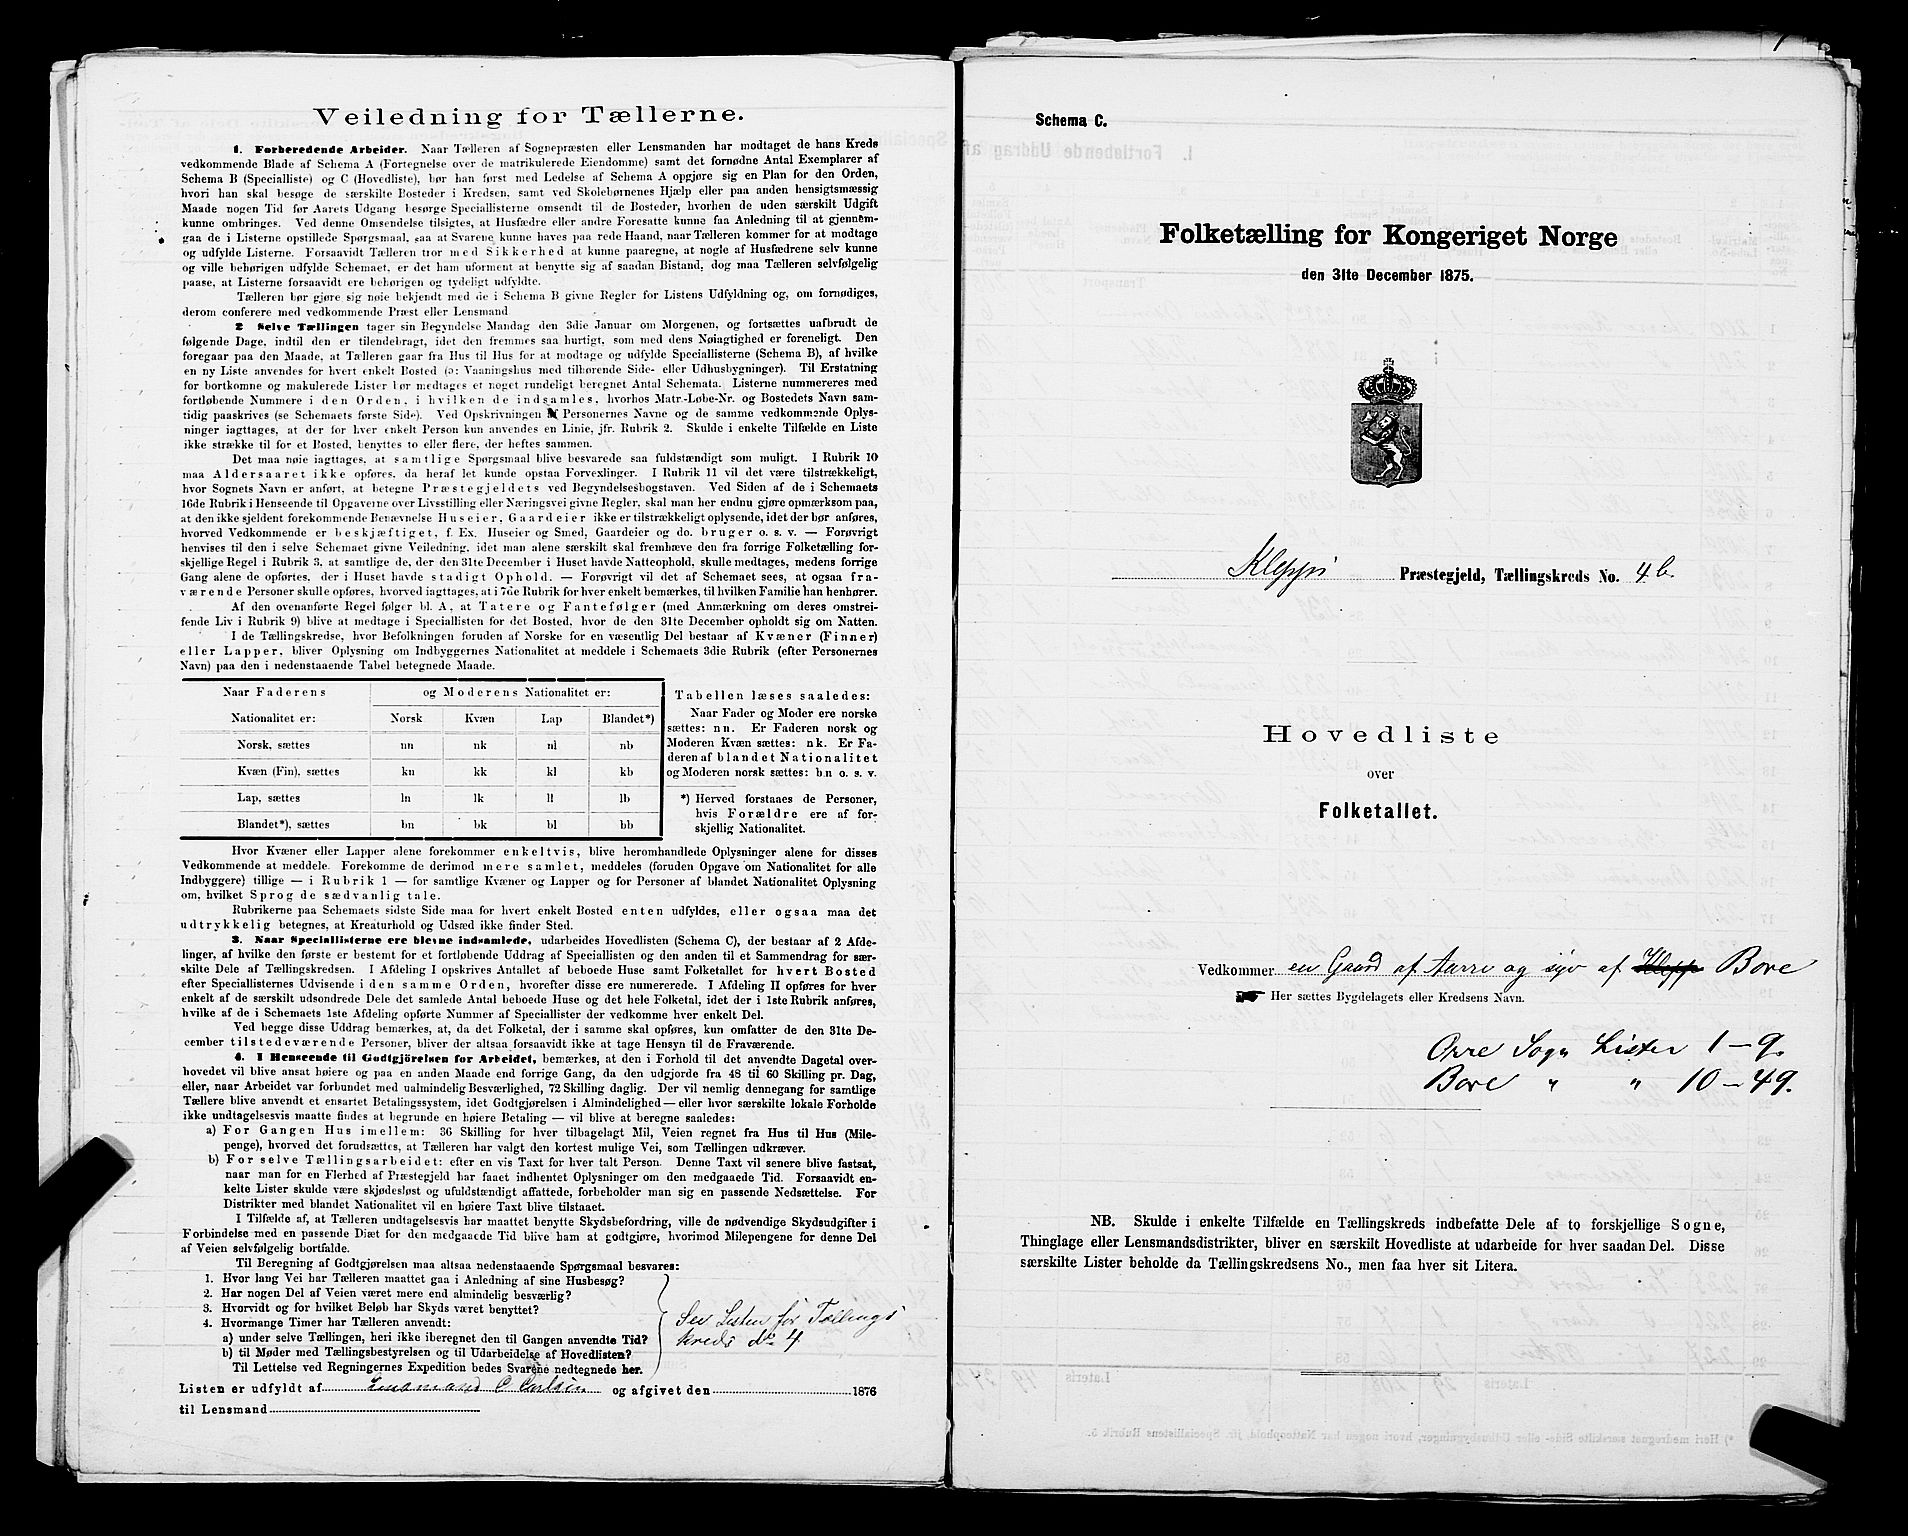 Veiledning for Tællerne.
1. Forberedende Arbeider. Naar Tælleren af Sognepræsten eller Lensmanden har modtaget de hans Kreds
vedkommende Blade af Schema A (Fortegnelse over de matrikulerede Eiendomme) samt det fornødne Antal Exemplarer af
Schema B (Specialliste) og C (Hovedliste), bør han først med Ledelse af Schema A opgjøre sig en Plan for den Orden,
hvori han skal besøge de særskilte Bosteder i Kredsen, samt ved Skolebørnenes Hjælp eller paa anden hensigtsmæssig
Maade nogen Tid før Aarets Udgang besørge Speciallisterne omsendt til de Bosteder, hvorhen de uden særskilt Udgift
kunne ombringes. Ved denne Omsendelse tilsigtes, at Husfædre eller andre Foresatte kunne faa Anledning til at gjennem-
gaa de i Listerne opstillede Spørgsmaal, saa at Svarene kunne haves paa rede Haand, naar Tælleren kommer for at modtage
og udfylde Listerne. Forsaavidt Tælleren tror med Sikkerhed at kunne paaregne, at nogle af Husfædrene selv kunne
og ville behørigen udfylde Schemaet, er det ham uforment at benytte sig af saadan Bistand, dog maa Tælleren selvfølgelig
paase, at Listerne forsaavidt ere behørigen og tydeligt udfyldte.
Tælleren bør gjøre sig nøie bekjendt med de i Schema B givne Regler for Listens Udfyldning og, om fornødiges,
derom conferere med vedkommende Præst eller Lensmand
2 Selve Tællingen tager sin Begyndelse Mandag den 3die Januar om Morgenen, og fortsættes uafbrudt de
følgende Dage, indtil den er tilendebragt, idet den fremmes saa hurtigt, som med dens Nøiagtighed er foreneligt. Den
foregaar paa den Maade, at Tælleren gaar fra Hus til Hus for at modtage og udfylde Speciallisterne (Schema B), af hvilke
en ny Liste anvendes for hvert enkelt Bosted (ɔ: Vaaningshus med tilhørende Side- eller Udhusbygninger). Til Erstatning
for bortkomne og makulerede Lister bør medtages et noget rundeligt beregnet Antal Schemata. Listerne nummereres med
fortløbende Nummere i den Orden, i hvilken de indsamles, hvorhos Matr.-Løbe-Nr. og Bostedets Navn sam-
tidig paaskrives (se Schemaets første Side). Ved Opskrivningen af Personernes Navne og de samme vedkommende Oplys-
ninger iagttages, at der for hver enkelt Person kun anvendes en Linie, jfr. Rubrik 2. Skulde i enkelte Tilfælde en Liste
ikke strække til for et Bosted, benyttes to eller flere, der heftes sammen.
Det maa nøie iagttages, at samtlige Spørgsmaal blive besvarede saa fuldstændigt som muligt. I Rubrik 10
maa Aldersaaret ikke opføres, da heraf let kunde opstaa Forvexlinger. I Rubrik 11 vil det være tilstrækkeligt,
hvor Sognets Navn er anført, at betegne Præstegjeldets ved Begyndelsesbogstaven. Ved Siden af de i Schemaets
16de Rubrik i Henseende til Opgaverne over Livsstilling eller Næringsvei givne Regler, skal man her endnu gjøre opmærksom paa,
at den ikke sjeldent forekommende Benævnelse Huseier, Gaardeier ikke er tilstrækkeligt oplysende, idet der bør anføres,
hvorved Vedkommende er beskjæftiget, f. Ex. Huseier og Smed, Gaardeier og do. bruger o. s. v. — Forøvrigt
henvises til den i selve Schemaet givne Veiledning, idet man alene særskilt skal fremhæve den fra forrige Folketælling for-
skjellige Regel i Rubrik 3, at samtlige de, der den 31te December i Huset havde Natteophold, skulle medtages, medens forrige
Gang alene de opførtes, der i Huset havde stadigt Ophold. — Forøvrigt vil det af Schemaet sees, at ogsaa fra-
værende Personer skulle opføres, hvorved iagttages, at i 7de Rubrik for hver enkelt bemærkes, til hvilken Familie han henhører.
Af den ovenanførte Regel følger bl. A, at Tatere og Fantefølger (med Anmærkning om deres omstrei-
fende Liv i Rubrik 9) blive at medtage i Speciallisten for det Bosted, hvor de den 31te December opholdt sig om Natten.
I de Tællingskredse, hvor Befolkningen foruden af Norske for en væsentlig Del bestaar af Kvæner (Finner)
eller Lapper, bliver Oplysning om Indbyggernes Nationalitet at meddele i Schemaets 3die Rubrik (efter Personernes
Navn) paa den i nedenstaaende Tabel betegnede Maade.
Naar Faderens og Moderens Nationalitet er:
Nationalitet er: Norsk Kvæn Lap Blandet*)
Norsk, sættes nn nk nl nb
Kvæn (Fin), sættes kn kk kl kb
Lap, sættes ln lk ll lb
Blandet*), sættes bn bk bl bb
Tabellen læses saaledes:
Naar Fader og Moder ere norske
sættes: nn. Er Faderen norsk og
Moderen Kvæn sættes: nk. Er Fa-
deren af blandet Nationalitet
og Moderen norsk sættes: bn o. s. v.
*) Herved forstaaes de Personer,
hvis Forældre ere af for-
skjellig Nationalitet.
Hvor Kvæner eller Lapper alene forekommer enkeltvis, blive heromhandlede Oplysninger alene for disses
Vedkommende at meddele. Forekomme de derimod mere samlet, meddeles (foruden Opgave om Nationalitet for alle
Indbyggere) tillige — i Rubrik 1 — for samtlige Kvæner og Lapper og for Personer af blandet Nationalitet Oplysning
om, hvilket Sprog de sædvanlig tale.
Rubrikerne paa Schemaets sidste Side maa for hvert enkelt Bosted enten udfyldes, eller ogsaa maa det
udtrykkelig betegnes, at Kreaturhold og Udsæd ikke finder Sted.
3. Naar Speciallisterne ere blevne indsamlede, udarbeides Hovedlisten (Schema C), der bestaar af 2 Afde-
linger, af hvilke den første er bestemt for et fortløbende Uddrag af Speciallisten og den anden til et Sammendrag for sær-
skilte Dele af Tællingskredsen. I Afdeling I opskrives Antallet af beboede Huse samt Folketallet for hvert Bosted
efter Speciallisternes Udvisende i den samme Orden, hvorefter disse ere numererede. I Afdeling II opføres for hver
enkelt af de særskilt udsondrede Dele det samlede Antal beboede Huse og det hele Folketal, idet der i 1ste Rubrik anføres,
hvilke af de i Schemaets 1ste Afdeling opførte Nummer af Speciallister der vedkomme hver enkelt Del.
Ved begge disse Uddrag bemærkes, at, da det Folketal, der i samme skal opføres, kun omfatter de den 31te De-
cember tilstedeværende Personer, bliver der altsaa forsaavidt ikke at tage Hensyn til de Fraværende.
4. I Henseende til Godtgjörelsen for Arbeidet, bemærkes, at den i Forhold til det anvendte Dagetal over-
hovedet vil blive ansat høiere og paa en anden Maade end forrige Gang, da den udgjorde fra 48 til 60 Skilling pr. Dag,
eller, naar Arbeidet var forbundet med ualmindelig Besværlighed, 72 Skilling daglig. Der vil nemlig dennegang for samtlige
Tællere blive anvendt et ensartet Betalingssystem, idet Godtgjørelsen i Almindelighed — eller hvor særskilte lokale Forholde
ikke undtagelsesvis maatte findes at begrunde en høiere Betaling — vil blive at beregne saaledes:
a) For Gangen Hus imellem: 36 Skilling for hver tilbagelagt Mil, Veien regnet fra Hus til Hus (Mile-
penge), hvorved det forudsættes, at Tælleren har valgt den kortest mulige Vei, som Tællingen udkræver.
b) For selve Tællingsarbeidet: efter en vis Taxt for hver talt Person. Denne Taxt vil senere blive fastsat,
naar man for en Flerhed af Præstegjeld har faaet indhentet Oplysninger om den medgaaede Tid. Forsaavidt en-
kelte Lister skulde være skjødesløst og ufuldstændigt affattede, forbeholder man sig en passende Nedsættelse. For
Distrikter med blandet Nationalitet vil en høiere Taxt blive tilstaaet.
I Tilfælde af, at Tælleren undtagelsesvis har maattet benytte Skydsbefordring, ville de nødvendige Skydsudgifter i
Forbindelse med en passende Diæt for den medgaaede Tid blive ham at godtgjøre, hvorimod Milepengene for denne Del
af Veien selvfølgelig bortfalde.
Til Beregning af Godtgjørelsen maa altsaa nedenstaaende Spørgsmaal besvares:
1. Hvor lang Vei har Tælleren maattet gaa i Anledning af sine Husbesøg?
2. Har nogen Del af Veien været mere end almindelig besværlig?
3. Hvorvidt og for hvilket Beløb har Skyds været benyttet?
4. Hvormange Timer har Tælleren anvendt:
a) under selve Tællingen, heri ikke iberegnet den til Gangen anvendte Tid?
b) til Møder med Tællingsbestyrelsen og til Udarbeidelse af Hovedlisten?
Til Lettelse ved Regningernes Expedition bedes Svarene nedtegnede her.
See Listen for Tællings
kreds No 4
Listen er udfyldt af Lensmand C Carlsen og afgivet den 1876
til Lensmand
Schema C.
Folketælling for Kongeriget Norge
den 31te December 1875.
Klepps Præstegjeld, Tællingskreds No. 4b.
Hovedliste
over
Folketallet.
Vedkommer en Gaard af Aarre og syv af Klepp Bore
Her sættes Bygdelagets eller Kredsens Navn.
Orre Sogn Lister 1–9.
Bore " " 10–49.
NB. Skulde i enkelte Tilfælde en Tællingskreds indbefatte Dele af to forskjellige Sogne,
Thinglage eller Lensmandsdistrikter, bliver en særskilt Hovedliste at udarbeide for hver saadan Del. Disse
særskilte Lister beholde da Tællingskredsens No., men faa hver sit Litera.